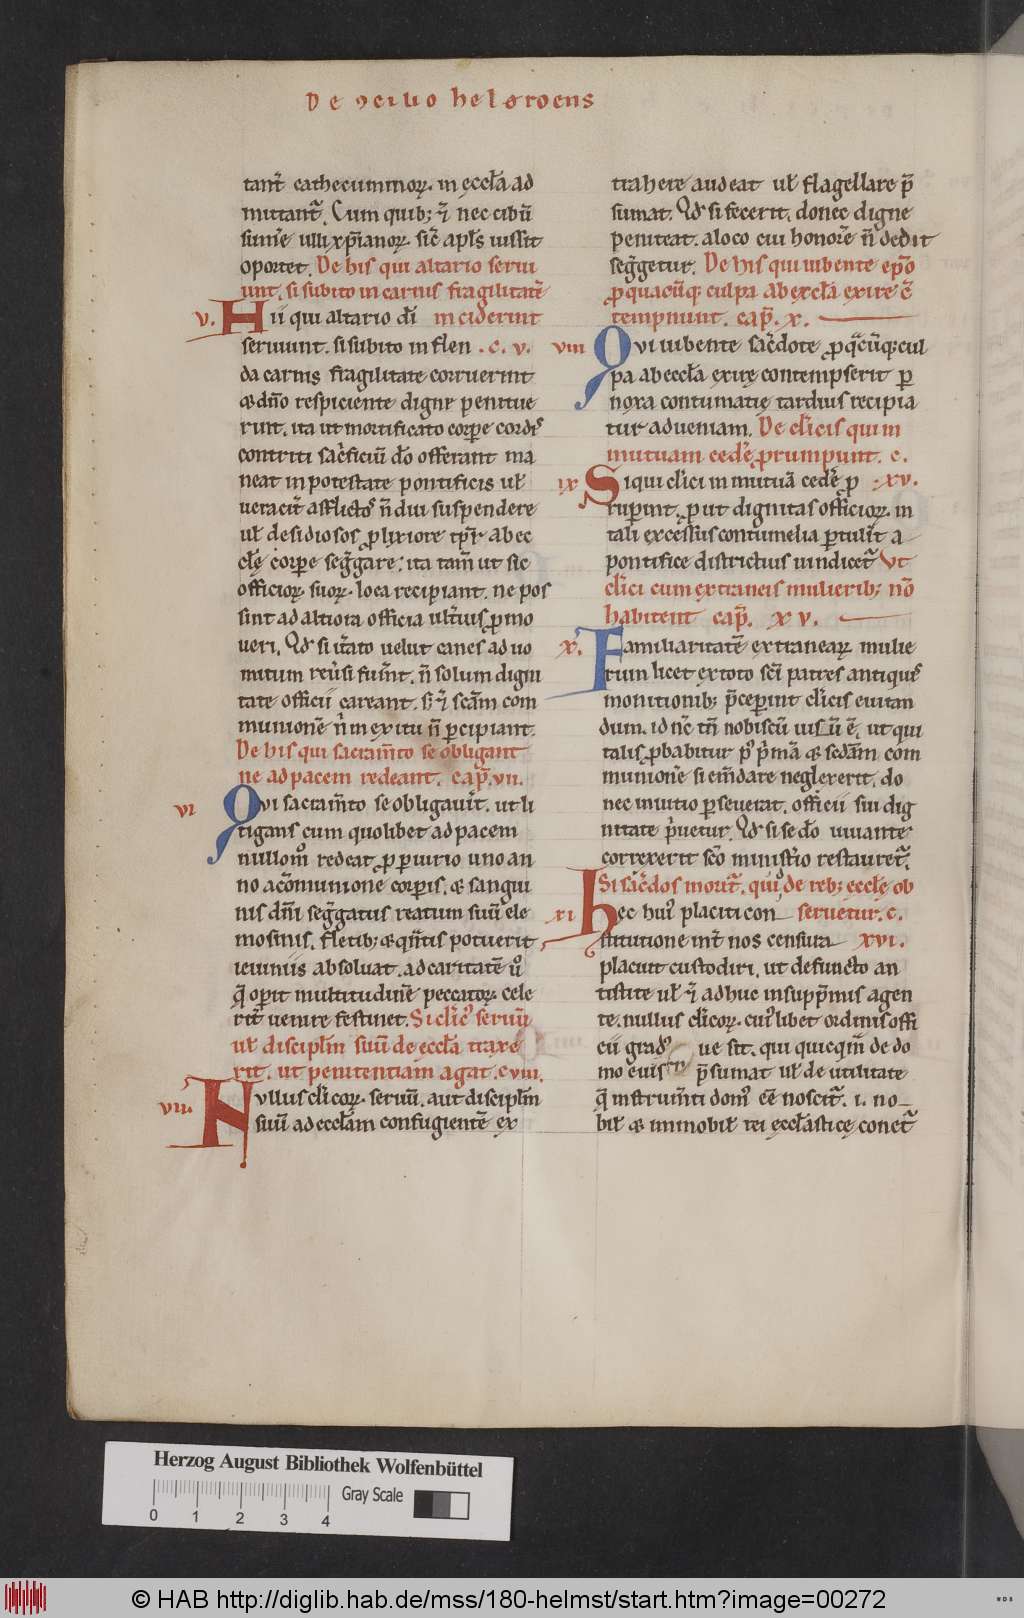 De ꝯcilio helerdens
tant̃ cathecuminoꝝ. in ęccl̃a ad
mittant᷑. Cum quib; ⁊ nec cibũ
sum̃e ulli xp̃ianoꝝ. sic̃ apl̃s iussit
oportet. De his qui altario serui
unt. si subito in carnis fragilitatẽ
v. Hii qui altario dĩ inciderint
seruiunt. si subito in flen .c. v.
da carnis fragilitate corruerint
& dño respiciente digne penitue
rint. ita ut mortificato corp̱e cordis
contriti sac̃ficiũ dõ offerant ma
neat in potestate pontificis ul̃
ueracit̃ afflictos ñ diu suspendere
ul̃ desidiosos ꝓlixiore tp̃r̃ ab ec
cl̃ę corp̱e seg̃gare: ita tam̃ ut sic
officioꝝ suoꝝ. loca recipiant. ne pos
sint ad altiora officia ult̃ius ꝓmo
ueri. Qd̃ si it̃ato uelut canes ad uo
mitum reũsi fuer̃nt. ñ solum digni
tate officii careant. s; ⁊ sc̃am com
munionẽ ñ in exitu ñ ꝑcipiant.
De his qui sacram̃to se obligant
ne ad pacem redeant. cap̃. vii.
vi Qui sacram̃to se obligauit̃. ut li
tigans cum quolibet ad pacem
nullom̊ redeat ꝓ ꝑiurio uno an
no a cõmunione corporis, & sangui
nis dñi seg̃gatus reatum suũ ele
mosinis. fletib; & qñtis potuerit
ieiuniis absoluat. ad caritatẽ ů
q̃ oꝑit multitudinẽ peccatoꝝ. cele
rit̃ uenire festinet. Si cl̃ic᷒ seruũ
ul̃ discipl̃in suũ de ęccl̃a traxe
rit. ut penitentiam agat. c viii.
vii. Nullus cl̃icoꝝ. seruũ, aut discipl̃in
suũ ad eccl̃am confugientẽ ex
trahere audeat ul̃ flagellare p̃
sumat. Qd̃ si fecerit. donec digne
peniteat. a loco cui honorẽ ñ dedit
seg̃getur. De his qui iubente ep̃o
ꝓ quacũq; culpa ab eccl̃a exire cõ
tempnunt. cap̃. x.
viii Qui iubente sac̃dote ꝓ q̃cũq; cul
pa ab eccl̃a exire contempserit ꝑ
noxa contumacię tardius recipia
tur ad ueniam. De cl̃icis qui in
mutuam cedẽ ꝓrumpunt. c.
ix Si qui cl̃ici in mutuã cedẽ ꝓ xv.
ruꝑint ꝓut dignitas officioꝝ. in
tali excessus contumelia ꝑtulit̃ a
pontifice districtius uindicet᷑ Ut
cl̃ici cum extraneis mulierib; nõ
habitent cap̃. xv.
x. Familiaritatẽ extraneaꝝ mulie
rum licet ex toto sc̃i patres antiquis
monitionib; p̃ceperint cl̃icis euitan
dum. id nc̃ tñ nobiscũ uisũ ẽ. ut qui
talis ꝓbabitur p᷒ p̃mã & sedãm com
munionẽ si em̃dare neglexerit. do
nec in uitio ꝑseuerat. officii sui dig
nitate p̃uetur. Qd̃ si se dõ iuuante
correxerit sc̃o minist̃io restauret᷑.
Si sac̃dos morit᷑. quid de reb; eccl̃ę ob
xi Hec hui᷒ placiti con seruetur. c.
stitutione int̃ nos censura xvi.
placuit custodiri. ut defuncto an
tistite ul̃ ⁊ adhuc in supp̃mis agen
te. nullus cl̃icoꝝ. cui᷒libet ordinis offi
cii gradus ue sit. qui quicq̃m de do
mo euis p̃sumat ul̃ de utilitate
q̃ instrum̃ti dom᷒ eẽ noscit᷑. i. no
bil̃ & immobil̃ rei eccl̃astice conet᷑
Herzog August Bibliothek Wolfenbüttel
Gray Scale
0 1 2 3 4
© HAB http://diglib.hab.de/mss/180-helmst/start.htm?image=00272